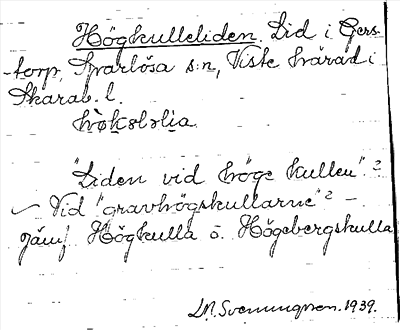 Högkulleliden. Lid i Gers-
torp, Sparlösa s:n, Viste härad i
Skarab. l.
hò̱ḵələlia
"Liden vid höge kullen"?
Vid "gravhögskullarne"? –
jämf Högkulla o. Högebergskulla
Sveningsson. 1939.